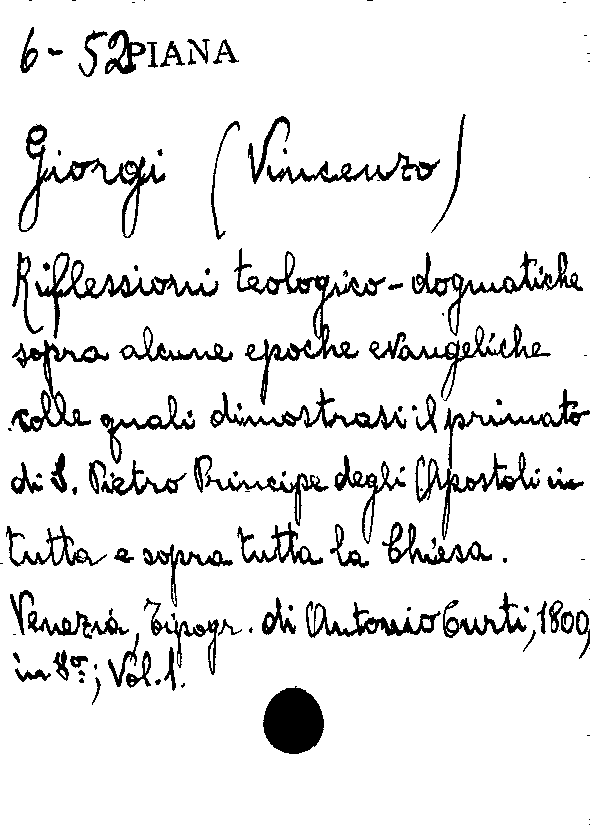 6-52 PIANA
Giorgi (Vincenzo)
Riflessioni teologico-dogmatiche
sopra alcune epoche evangeliche
colle quali dimostrasi il primato
di S. Pietro Principe degli Apostoli in
tutta e sopra tutta la Chiesa.
Venezia, Tipogr. di Antonio Curti, 1800,
in 8º; Vol. 1.